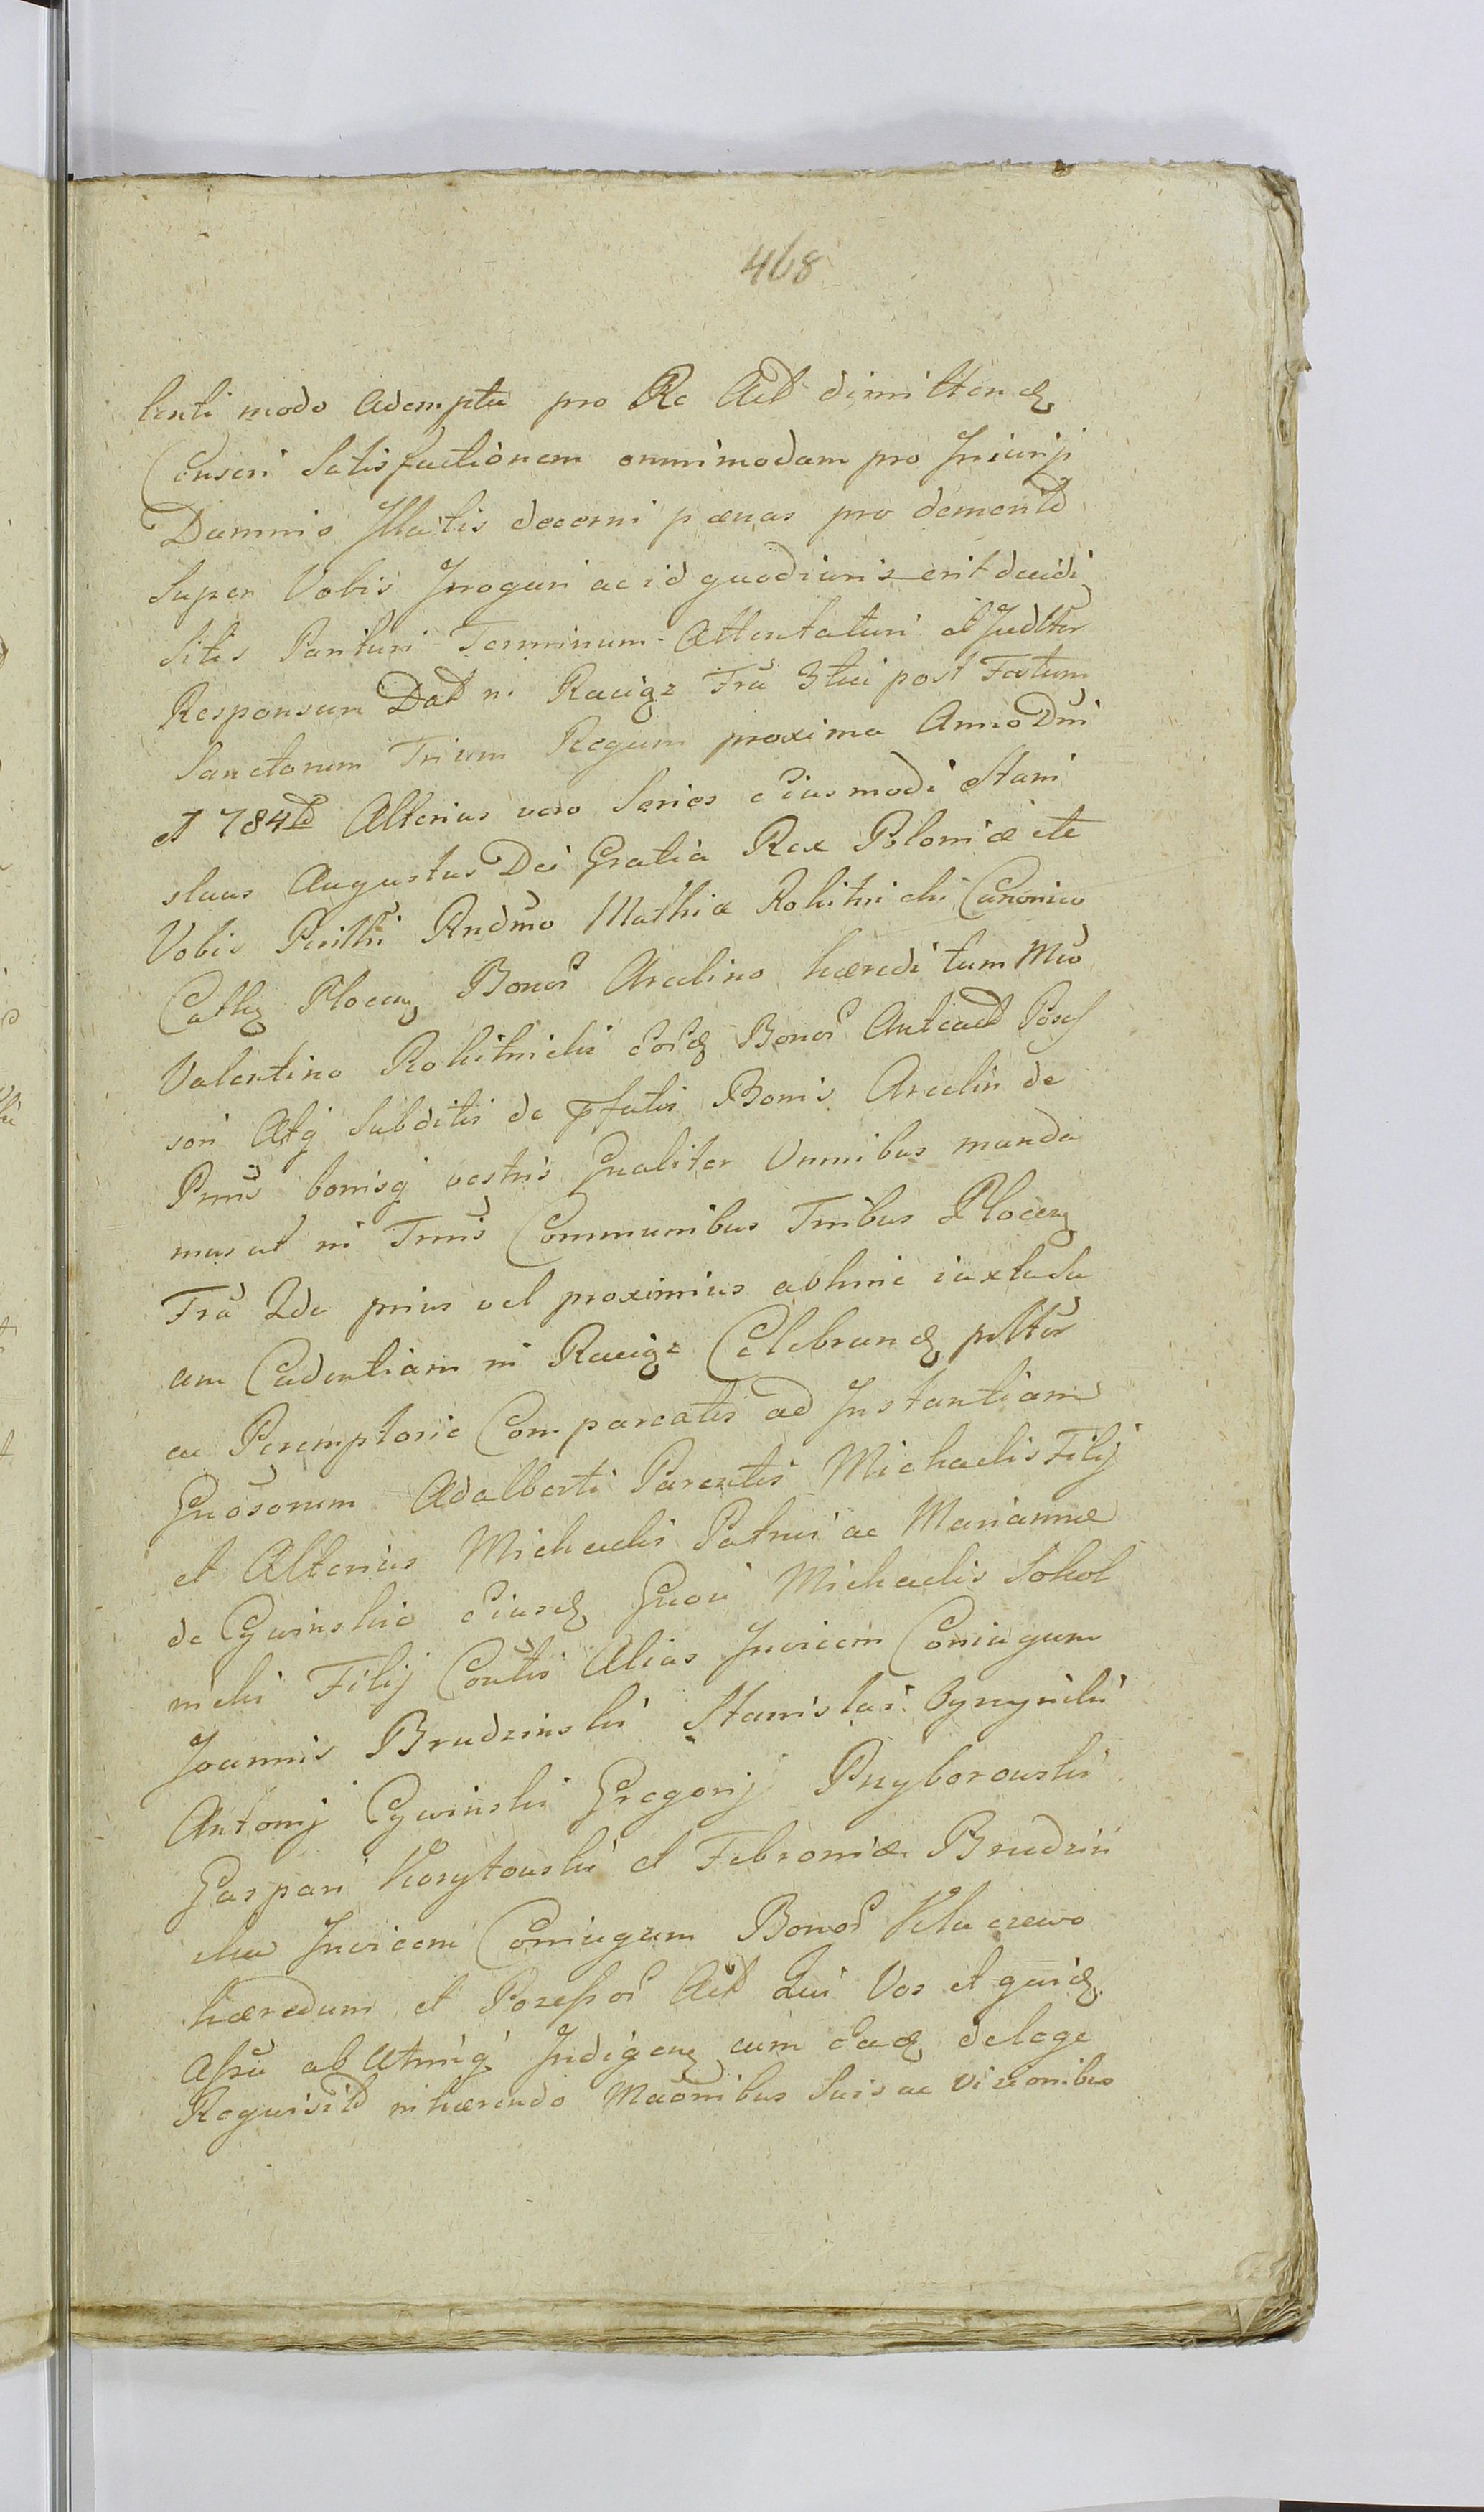 468
lenti modo adempta pro Re Act dimittend
Censeri Satisfactionem omnimodam pro Iniurijs
Damnis Illatis decerni pænas pro demerito
Super Vobis Irrogari ac id quod iuris erit decidi
Sitis Parituri Terminum Attentaturi et Juditer
Responsuri Dat in Raciąz Fria 3tia post Festum
Sanctorum Trium Regum proxima Anno Dni
1784to Alterius vero Series eiusmodi Stani
slaus Augustus Dei Gratia Rex Poloniæ etc
Vobis Perilli Rndmo Mathiæ Rokitnicki Canonico
Cathr Plocen Bonor Arcelino hæredi tum Mco
Valentino Rokitnicki eord Bonor Anteact Posses
sori Atq Subditis de pfatis Bonis Arcelin de
Prnis bonisq vestris Gnaliter Omnibus manda
mus ut in Trmis Communibus Trribus Plocen
Fria 2da prius vel proximius abhinc iuxta Su
am Cadentiam in Raciąz Celebrand psltr
ac Peremptorie Compareatis ad Instantiam
Gnosorum Adalberti Parentis Michaelis Filij
et Alterius Michaelis Patrui ac Mariannæ
de Cywinskie eiusd Gnosi Michaelis Sokol
nicki Filij Contis Alias Invicem Coniugum
Joannis Brudzinski Stanislai
Antonij Cywinski Gregorij Przyborowski
Gaspari Korytowski et Febroniæ Brudzin
ska Invicem Coniugum Bonor Kluczewo
hæredum et Possessor Act Qui Vos et quid
Assu ab utrinq Indigen cum ead delage
Requisit inhærendo Maonibus Suis ac vizionibus